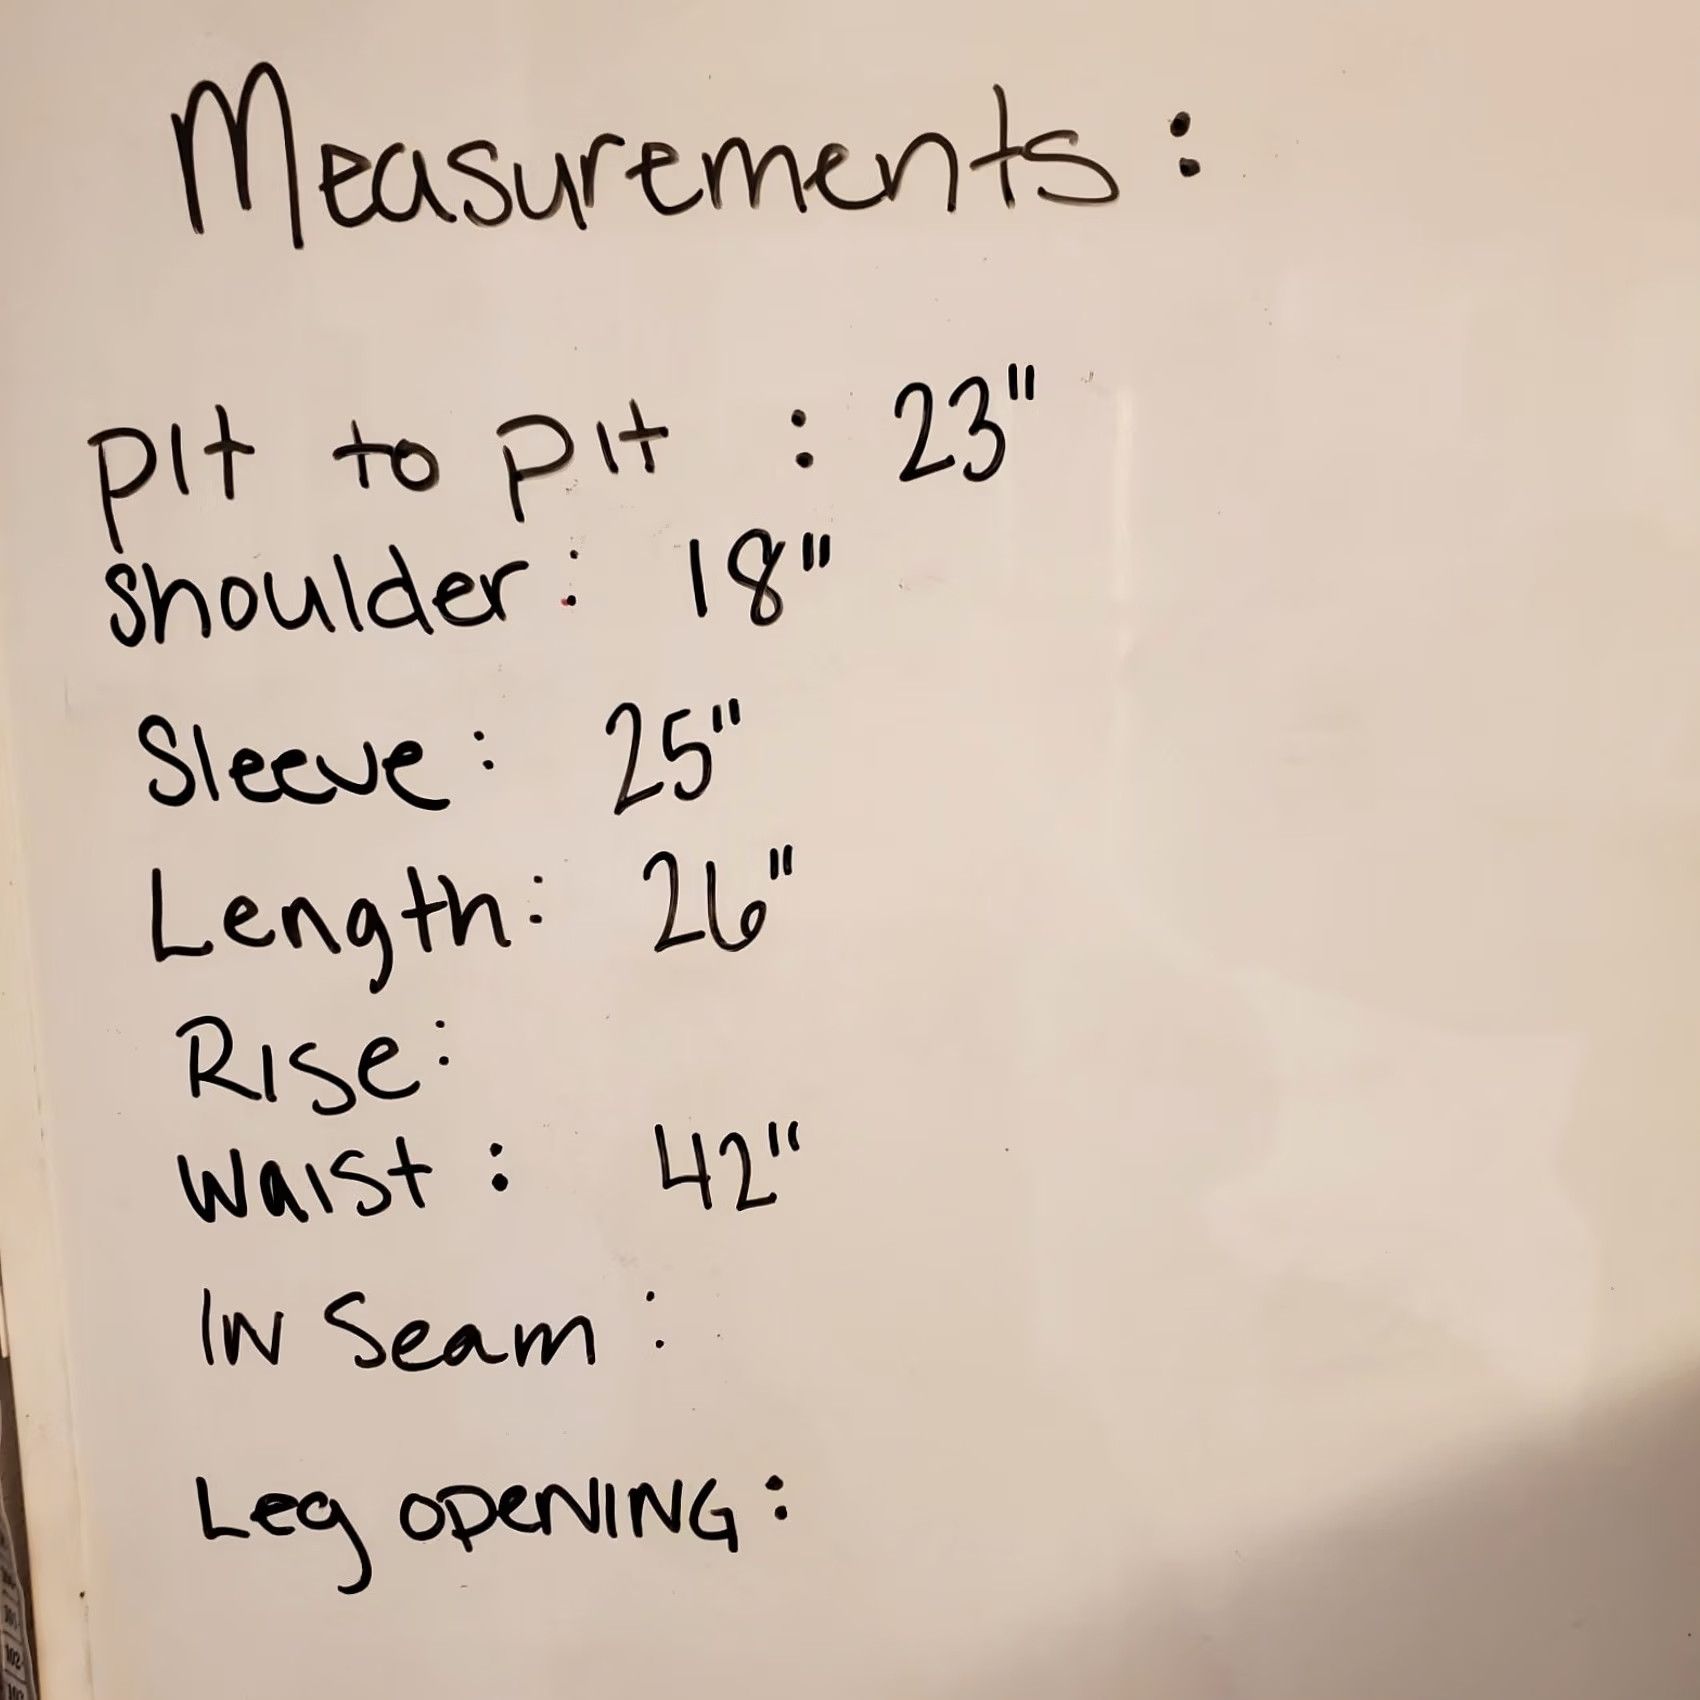 Measurements:
pit to pit : 23"
shoulder: 18"
Sleeve: 25"
Length: 26"
Rise:
Waist: 42"
IN Seam:
Leg OPENING:
102